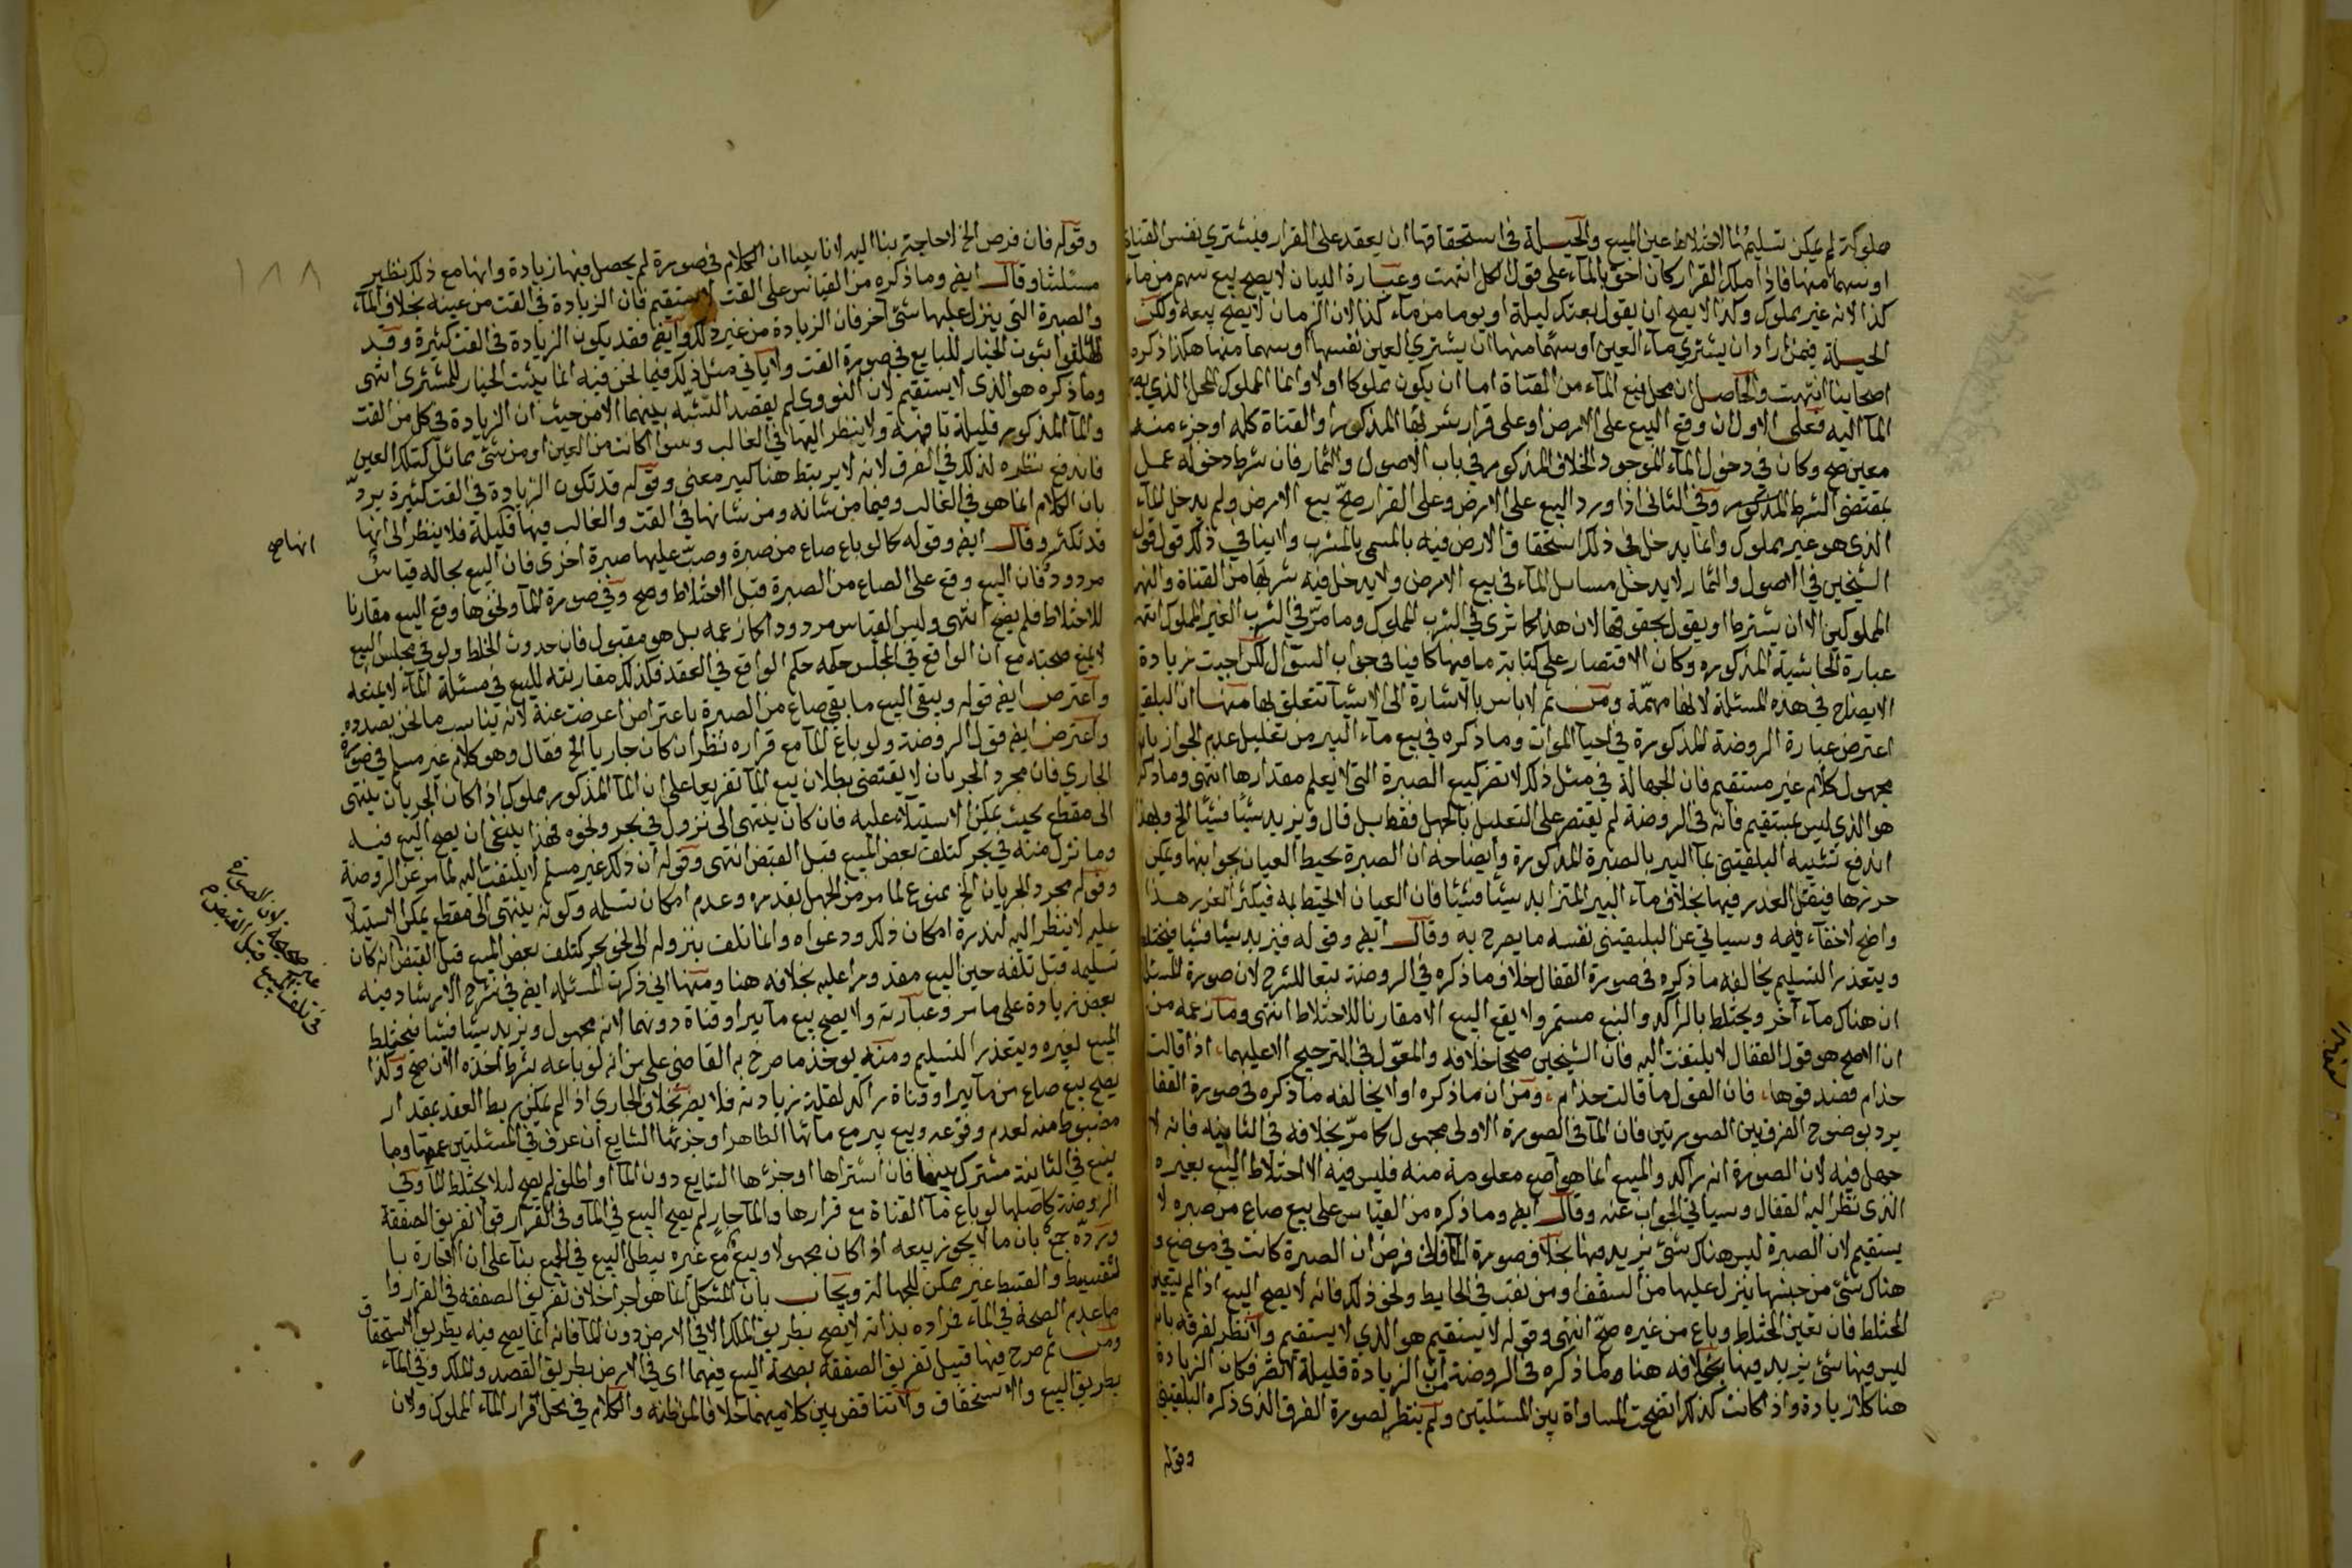 مملوكة لم يمكن تسليمها لاختلاط عين المبيع والحيلة في استحقاقها ان يعقد على القرار فيشتري نفس القناة
او سهما منها فاذا ملك القرار كان احق بالماء على قول الكل انتهت وعبارة البيان لا يصح بيع سهم من ماء
كذا لانه غير مملوك وكذا لا يصح ان يقول بعتك ليلة او يوما من ماء كذا لان الزمان لا يصح بيعه ولكن
الحيلة فيمن اراد ان يشتري ماء العين او سهما منها ان يشتري العين نفسها او سهما منها هكذا ذكره
اصحابنا انتهت والحاصل ان محل نبع الماء من القناة اما ان يكون مملوكا او لا وانما المملوك المحل الذي
الماء اليه فعلى الاول ان وقع البيع على الارض او على قرار شربها المذكور او القناة كله او جزء منه
معين صح وكان في دخول الماء الموجود الخلاف المذكور في باب الاصول والثمار فان شرط دخوله عمل
بمقتضى الشرط المذكور وفي الثاني اذا ورد البيع على الارض وعلى القرار صح بيع الارض ولم يدخل الماء
الذي هو غير مملوك وانما يدخل في ذلك استحقاق الارض فيه بالمسمى بالشرب ولا ينافي ذلك قول
الشيخين في الاصول والثمار لا يدخل مسايل الماء في بيع الارض ولا يدخل فيه شربها من القناة والنهر
المملوكين الا ان يشترط او يقول بحقوقها لان هذا كما ترى في الشرب المملوك وما مر في الشرب الغير المملوك انتهت
عبارة الحاشية المذكورة وكان الاقتصار على كتابة ما فيها كافيا في جواب السؤال لكن اجبت بزيادة
الايضاح في هذه المسئلة لانها مهمة ومن ثم لا باس بالاشارة الى اشيا تتعلق بها منها ان البلقيني
اعترض عبارة الروضة المذكورة في احيا الموات وما ذكره في بيع ماء البير من تعليل عدم الجواز بانه
مجهول كلام غير مستقيم فان الجهالة في مثل ذلك لا تضر كبيع الصبرة التي لا يعلم مقدارها انتهى وما ذكره
هو الذي ليس بمستقيم فانه في الروضة لم يقتصر على التعليل بالجهل فقط بل قال ويزيد شيئا فشيئا الخ وبهذا
اندفع تشبيه البلقيني بماء البير بالصبرة المذكورة وايضاحه ان الصبرة يحيط العيان بجوانبها ويمكن
حزرها فيقل الغرر فيها بخلاف ماء البير المتزايد شيئا فشيئا فان العيان لا يحيط به فيكثر الغرر هذا
واضح لا خفاء فيه وسياتي عن البلقيني نفسه ما يصرح به وقال ايضا وقوله فيزيد شيئا فشيئا فيختلط
ويتعذر التسليم يخالفه ما ذكره في صورة القفال خلاف ما ذكره في الروضة تبعا للشرح لان صورة المسئلة
ان هناك ماء اخر ويختلط بالراكد والنبع مستمر ولا يقع البيع الا مقارنا للاختلاط انتهى وما زعمه من
ان الاصح هو قول القفال لا يلتفت اليه فان الشيخين صححا خلافه والمعول في الترجيح الا عليهما، اذا قالت
حذام فصدقوها، فان القول ما قالت حذام، ومن ان ما ذكره اولا يخالفه ما ذكره في صورة القفال
يرد بوضوح الفرق بين الصورتين فان الماء في الصورة الاولى مجهول كما مر بخلافه في الثانية فانه لا
جهل فيه لان الصورة انه راكد والمبيع انما هو اصع معلومة منه فليس فيه الا اختلاط المبيع بغيره
الذي نظر اليه القفال وسياتي الجواب عنه وقال ايضا وما ذكره من القياس على بيع صاع من صبره لا
يستقيم لان الصبرة ليس هناك شئ يزيد فيها بخلاف صورة الماء فان فرض ان الصبرة كانت في موضع و
هناك شئ من جنسها ينزل عليها من السقف او من نقب في الحايط ونحو ذلك فانه لا يصح البيع اذ لم يتعين
المختلط فان تعين المختلط وباع من غيره صح انتهى وقوله لا يستقيم هو الذي لا يستقيم ولا نظر لفرقه بان
ليس فيها شئ يزيد فيها بخلافه هنا وما ذكره في الروضة ان الزيادة قليلة لا تضر فكان الزيادة
هنا كلا زيادة واذا كانت كذلك اتضحت المساواة بين المسئلتين ولم ينظر لصورة الفرق الذي ذكره البلقيني
وقوله
١٨٨
وقوله فان فرض الخ لا حاجة بنا اليه لانا بينا ان الكلام في صورة لم يحصل فيها زيادة وانها مع ذلك نظير
مسئلتنا وقال ايضا وما ذكره من القياس على القت لا يستقيم فان الزيادة في القت من عينه بخلاف الماء
والصبرة التي ينزل عليها شئ اخر فان الزيادة من غير ذلك وايضا فقد يكون الزيادة في القت كثيرة وقد
اطلقوا ثبوت الخيار للبايع في صورة القت ولا ياتي مثل ذلك فيما نحن فيه انما يثبت الخيار للمشتري انتهى
وما ذكره هو الذي لا يستقيم لان النووي لم يقصد التشبيه بينهما الا من حيث ان الزيادة في كل من القت
والماء المذكور قليلة تافهة ولا ينظر اليها في الغالب وسوا كانت من العين او من شئ مماثل كتلك العين
فاندفع نظره لذلك في الفرق لانه لا يرتبط هنا كبير معنى وقوله قد تكون الزيادة في القت كثيرة يرد
بان الكلام انما هو في الغالب وفيما من شانه ومن شانها في القت والغالب فيها قليلة فلا ينظر الى انها
قد تكثر وقال ايضا وقوله كما لو باع صاع من صبرة وصب عليها صبرة اخرى فان البيع بحاله قياس
انها صح
مردود فان البيع وقع على الصاع من الصبرة قبل الاختلاط وصح وفي صورة الماء ونحوها وقع البيع مقارنا
للاختلاط فلم يصح انتهى وليس القياس مردودا كما زعمه بل هو مقبول فان حدوث الخلط ولو في مجلس البيع
لا يمنع صحته مع ان الواقع في المجلس حكمه حكم الواقع في العقد فكذلك مقارنته للبيع في مسئلة الماء لا يمنعه
واعترض ايضا قوله ويبقى البيع ما بقي صاع من الصبرة باعتراض اعرضت عنه لانه يناسب ما نحن بصدده
واعترض ايضا قول الروضة ولو باع الماء مع قراره نظر ان كان جاريا الخ فقال وهو كلام غير مسلم في صورة
الجاري فان مجرد الجريان لا يقتضي بطلان بيع الماء تفريعا على ان الماء المذكور مملوك اذا كان الجريان ينتهي
الى مقطع بحيث يمكن الاستيلاء عليه فان كان ينتهى الى نزول في بحر ونحوه فهذا ينبغي ان يصح البيع فيه
وما نزل منه في بحر كتلف بعض المبيع قبل القبض انتهى وقوله ان ذلك غير مسلم لا يلتفت اليه لما مر عن الروضة
وقوله مجرد الجريان الخ ممنوع لما مر من الجهل بقدره وعدم امكان تسلمه وكونه ينتهي الى مقطع يمكن الاستيلا
عليه لا ينظر اليه لندرة امكان ذلك ودعواه وانما تلف بنزوله الى نحو بحر كتلف بعض المبيع قبل القبض انه كان
في تلف المبيع قبل القبض
تسليمه قبل تلفه حين البيع مقدورا عليه بخلافه هنا ومنها اني ذكرت المسئلة ايضا في شرح الارشاد فيه
بعض زيادة على ما مر وعبارته ولا يصح بيع ماء بير او قناة دونهما لانه مجهول ويزيد شيئا فشيئا فيختلط
المبيع لغيره ويتعذر التسليم ومنه يوخذ ما صرح به القاضي على من انه لو باعه بشرط اخذه الان صح وكذا
يصح بيع صاع من ماء بير او قناة راكد لقلة زيادته فلا يضر بخلاف الجاري اذ لم يمكن ربط العقد بمقدار
مضبوط منه لعدم وقوعه وبيع بير مع مائها الظاهر او جزئها الشايع ان عرف في المسئلتين عمقها وما
ينبع في الثانية مشترك بينهما فان اشتراها او جزءها الشايع دون الماء او اطلق لم يصح ليلا يختلط الماء وفي
الروضة كاصلها لو باع ماء القناة مع قرارها والماء جار لم يصح البيع في الماء وفي القرار قولا تفريق الصفقة
ورده جمع بان ما لا يجوز بيعه اذا كان مجهولا وبيع مع غيره يبطل البيع في الجميع بناء على ان الاجازة با
لتقسيط والقسط غير ممكن للجهالة ويجاب بان المشكل انما هو اجرا خلاف تفريق الصفقة في القرار وا
ما عدم الصحة في الماء فمراده بذاته لا يصح بطريق الملك الا في الارض دون الماء فانه انما يصح فيه بطريق الاستحقاق
ومن ثم صرح فيها قبيل تفريق الصفقة بصحة البيع فيهما اي في الارض بطريق القصد والملك وفي الماء
بطريق البيع والاستحقاق ولا تناقض بين كلاميهما خلافا لمن ظنه والكلام في محل قرار الماء المملوك ولان